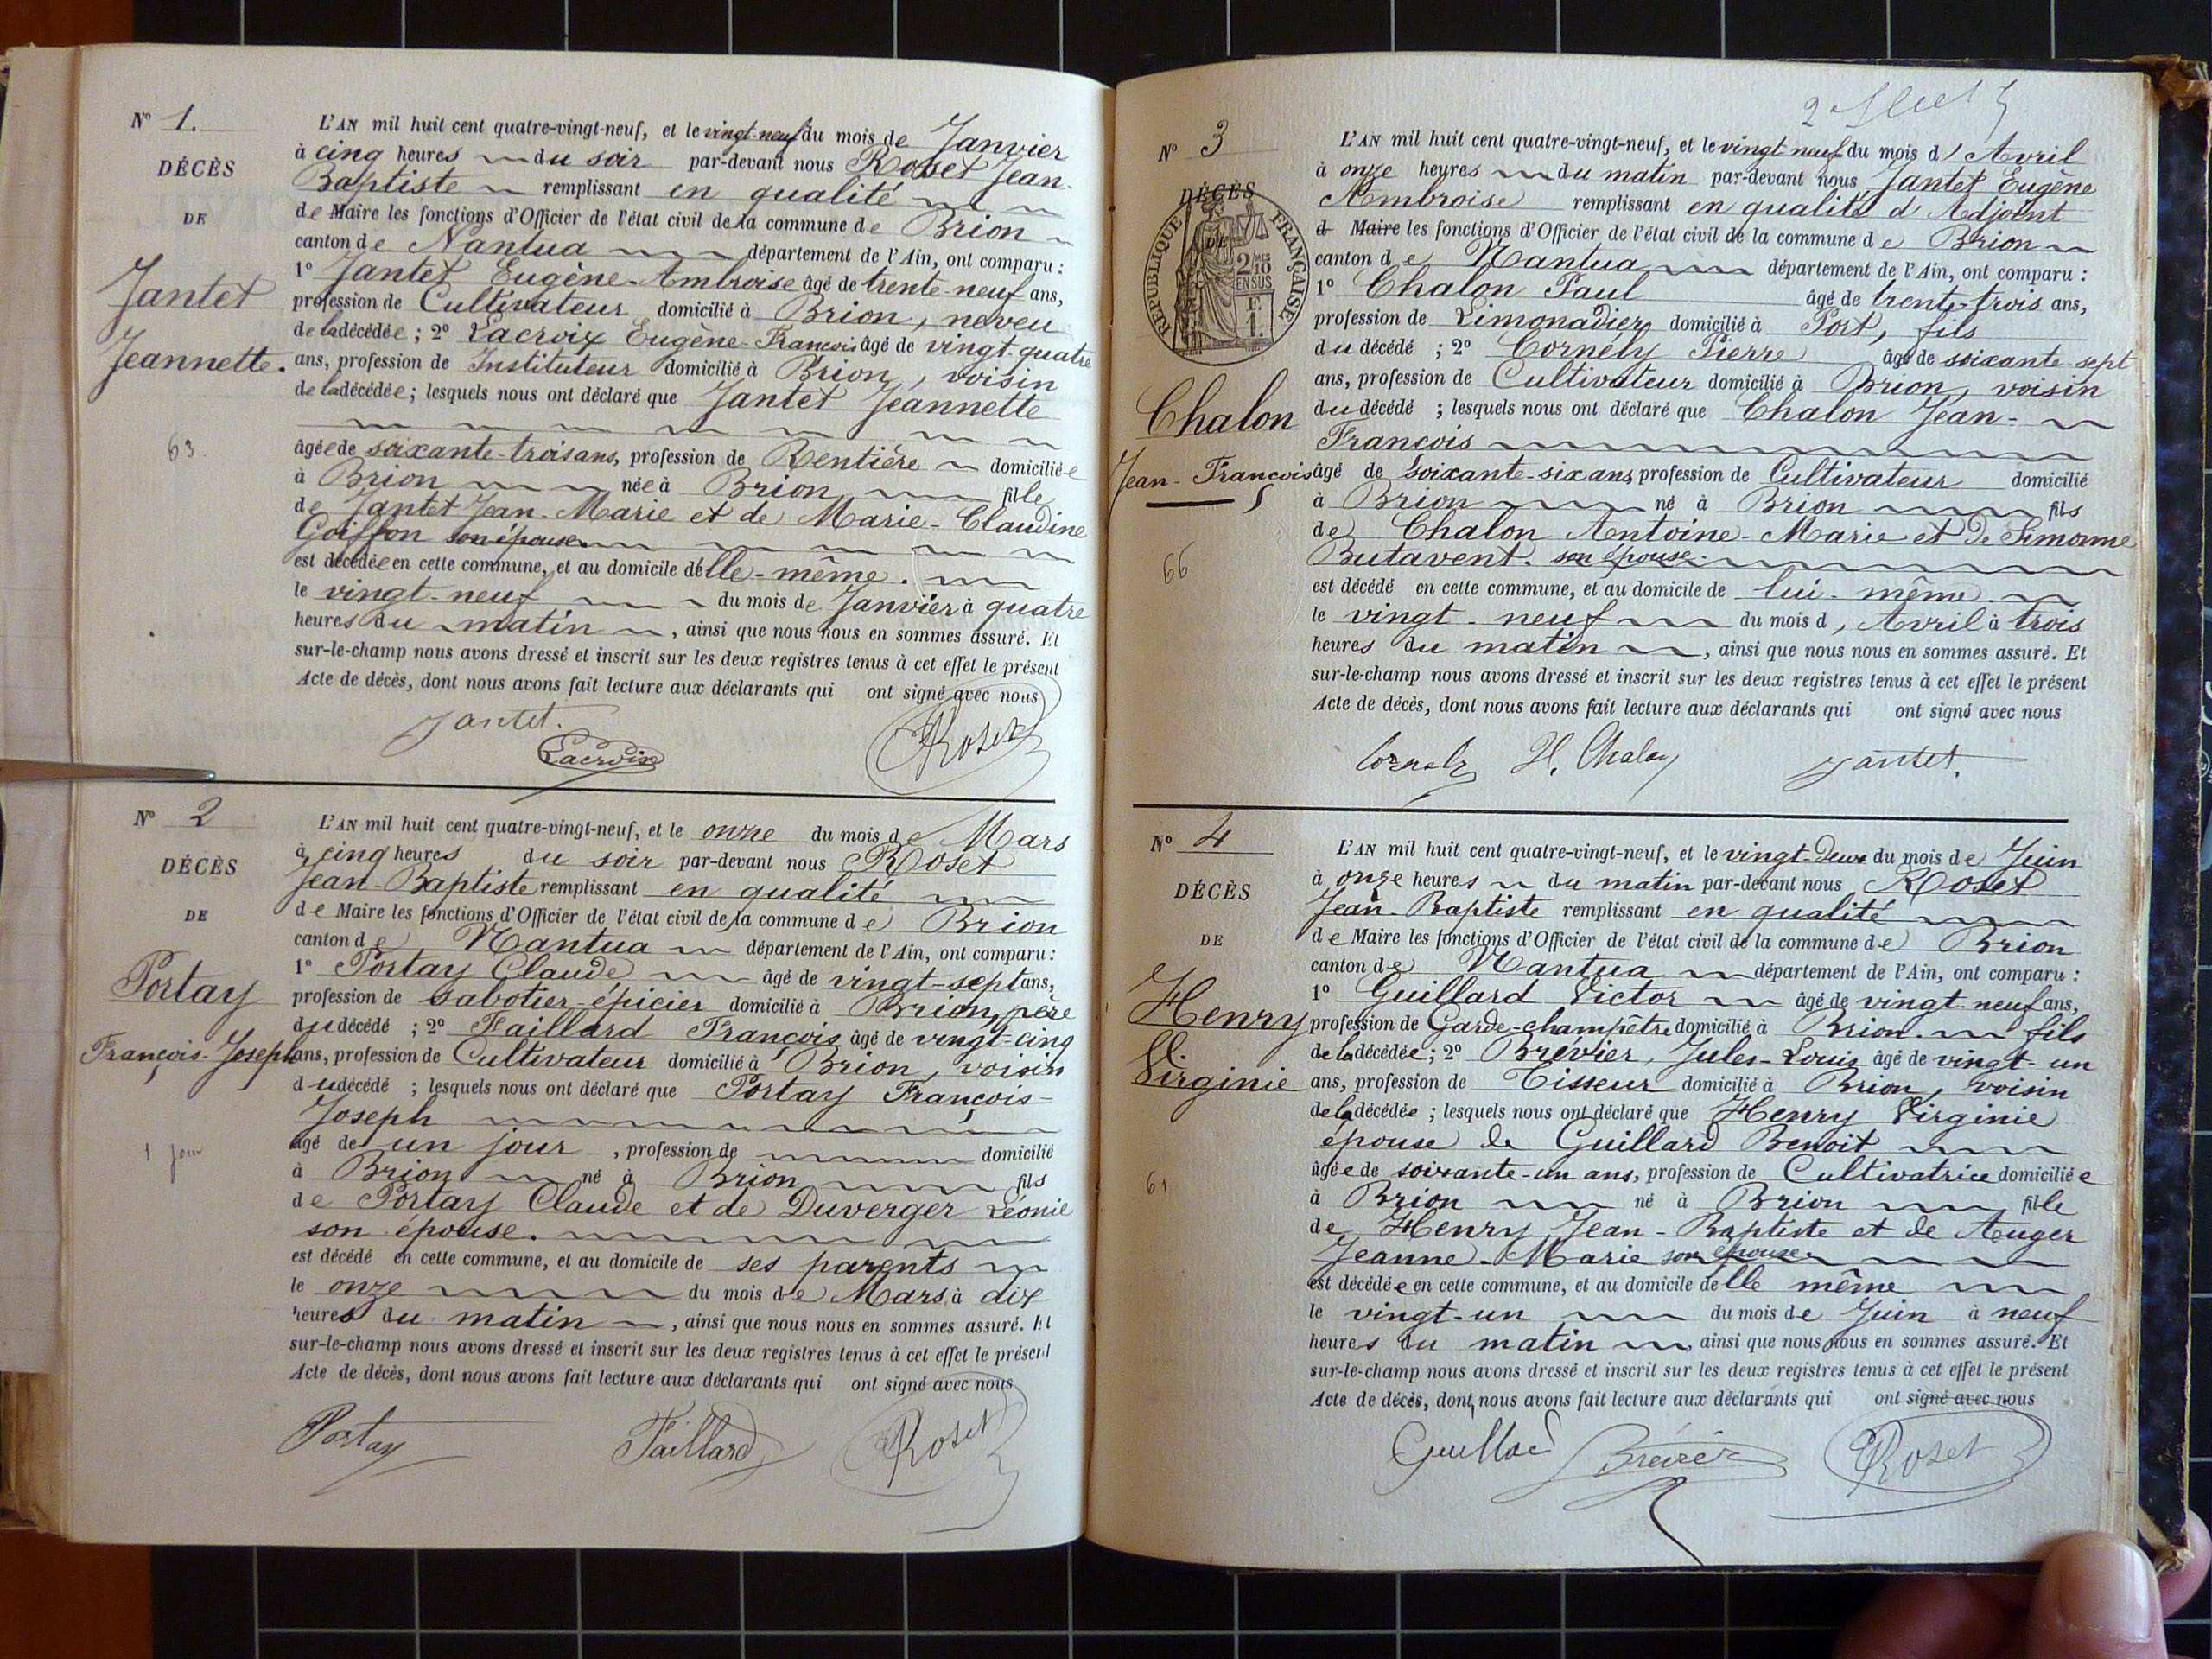 N° 1.
DÉCÈS
DE
Jantet
Jeannette.
63
L'AN mil huit cent quatre-vingt-neuf, et le vingt-neuf du mois de Janvier
à cinq heures du soir par-devant nous Roset Jean-
Baptiste remplissant en qualité
de Maire les fonctions d'Officier de l'état civil de la commune de Brion
canton de Nantua département de l'Ain, ont comparu :
1° Jantet Eugène-Ambroise âgé de trente-neuf ans,
profession de Cultivateur domicilié à Brion, neveu
de la décédée ; 2° Lacroix Eugène-François âgé de vingt-quatre
ans, profession de Instituteur domicilié à Brion, voisin
de la décédée ; lesquels nous ont déclaré que Jantet Jeannette
âgée de soixante-trois ans, profession de Rentière domiciliée
à Brion née à Brion fille
de Jantet Jean-Marie et de Marie-Claudine
Goiffon son épouse
est décédée en cette commune, et au domicile d'elle-même.
le vingt-neuf du mois de Janvier à quatre
heures du matin, ainsi que nous nous en sommes assuré. Et
sur-le-champ nous avons dressé et inscrit sur les deux registres tenus à cet effet le présent
Acte de décès, dont nous avons fait lecture aux déclarants qui ont signé avec nous
Jantet.
Lacroix
Roset
N° 2
DÉCÈS
DE
Portay
François-Joseph
1 jour
L'AN mil huit cent quatre-vingt-neuf, et le onze du mois de Mars
à cinq heures du soir par-devant nous Roset
Jean-Baptiste remplissant en qualité
de Maire les fonctions d'Officier de l'état civil de la commune de Brion
canton de Nantua département de l'Ain, ont comparu :
1° Portay Claude âgé de vingt-sept ans,
profession de sabotier-épicier domicilié à Brion, père
du décédé ; 2° Faillard François âgé de vingt-cinq
ans, profession de Cultivateur domicilié à Brion, voisin
du décédé ; lesquels nous ont déclaré que Portay François-
Joseph
âgé de un jour, profession de domicilié
à Brion né à Brion fils
de Portay Claude et de Duverger Léonie
son épouse.
est décédé en cette commune, et au domicile de ses parents
le onze du mois de Mars à dix
heures du matin, ainsi que nous nous en sommes assuré. Et
sur-le-champ nous avons dressé et inscrit sur les deux registres tenus à cet effet le présent
Acte de décès, dont nous avons fait lecture aux déclarants qui ont signé avec nous
Portay Faillard Roset
N° 3
DÉCÈS
DE
RÉPUBLIQUE FRANÇAISE
2/10 EN SUS
Chalon
Jean-François
66
L'AN mil huit cent quatre-vingt-neuf, et le vingt-neuf du mois d'Avril
à onze heures du matin par-devant nous Jantet Eugène
Ambroise remplissant en qualité d'Adjoint
d Maire les fonctions d'Officier de l'état civil de la commune de Brion
canton de Nantua département de l'Ain, ont comparu :
1° Chalon Paul âgé de trente-trois ans,
profession de Limonadier domicilié à Port, fils
du décédé ; 2° Cornély Pierre âgé de soixante-sept
ans, profession de Cultivateur domicilié à Brion, voisin
du décédé ; lesquels nous ont déclaré que Chalon Jean-
François
âgé de soixante-six ans profession de Cultivateur domicilié
à Brion né à Brion fils
de Chalon Antoine-Marie et de Simonne
Butavent. son épouse.
est décédé en cette commune, et au domicile de lui-même.
le vingt-neuf du mois d'Avril à trois
heures du matin, ainsi que nous nous en sommes assuré. Et
sur-le-champ nous avons dressé et inscrit sur les deux registres tenus à cet effet le présent
Acte de décès, dont nous avons fait lecture aux déclarants qui ont signé avec nous
Jantet.
N° 4
DÉCÈS
DE
Henry
Virginie
61
L'AN mil huit cent quatre-vingt-neuf, et le vingt-deux du mois de Juin
à onze heures du matin par-devant nous Roset
Jean-Baptiste remplissant en qualité
de Maire les fonctions d'Officier de l'état civil de la commune de Brion
canton de Nantua département de l'Ain, ont comparu :
1° Guillard Victor âgé de vingt-neuf ans,
profession de Garde-champêtre domicilié à Brion. fils
de la décédée ; 2° Brévier, Jules-Louis âgé de vingt-un
ans, profession de Tisseur domicilié à Brion, voisin
de la décédée ; lesquels nous ont déclaré que Henry Virginie
épouse de Guillard Benoit
âgée de soixante-un ans, profession de Cultivatrice domiciliée
à Brion né à Brion fille
de Henry Jean-Baptiste et de Auger
Jeanne-Marie son épouse.
est décédée en cette commune, et au domicile d'elle même
le vingt-un du mois de Juin à neuf
heures du matin ainsi que nous nous en sommes assuré. Et
sur-le-champ nous avons dressé et inscrit sur les deux registres tenus à cet effet le présent
Acte de décès, dont nous avons fait lecture aux déclarants qui ont signé avec nous
Brévier Roset